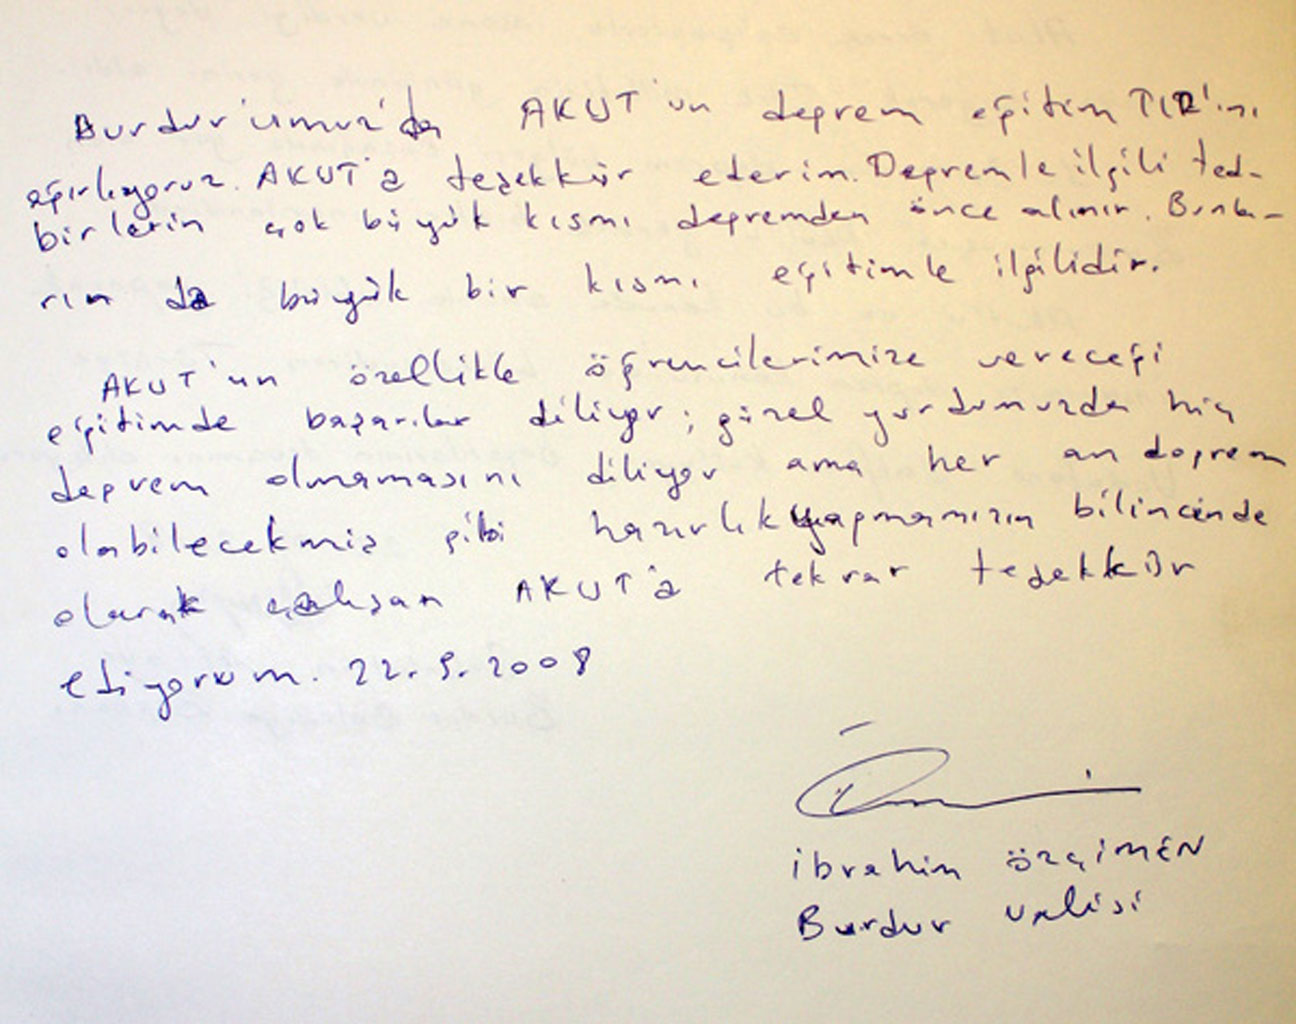 Burdur'umuz'da AKUT'un deprem eğitim TIR'ını
ağırlıyoruz. AKUT'a teşekkür ederim. Depremle ilgili ted-
birlerin çok büyük kısmı depremden önce alınır. Bunla-
rın da büyük bir kısmı eğitimle ilgilidir.
AKUT'un özellikle öğrencilerimize vereceği
eğitimde başarılar diliyor; güzel yurdumuzda hiç
deprem olmamasını diliyor ama her an deprem
olabilecekmiş gibi hazırlık yapmamızın bilincinde
olarak çalışan AKUT'a tekrar teşekkür
ediyorum. 22.5.2008
İbrahim ÖZÇİMEN
Burdur Valisi